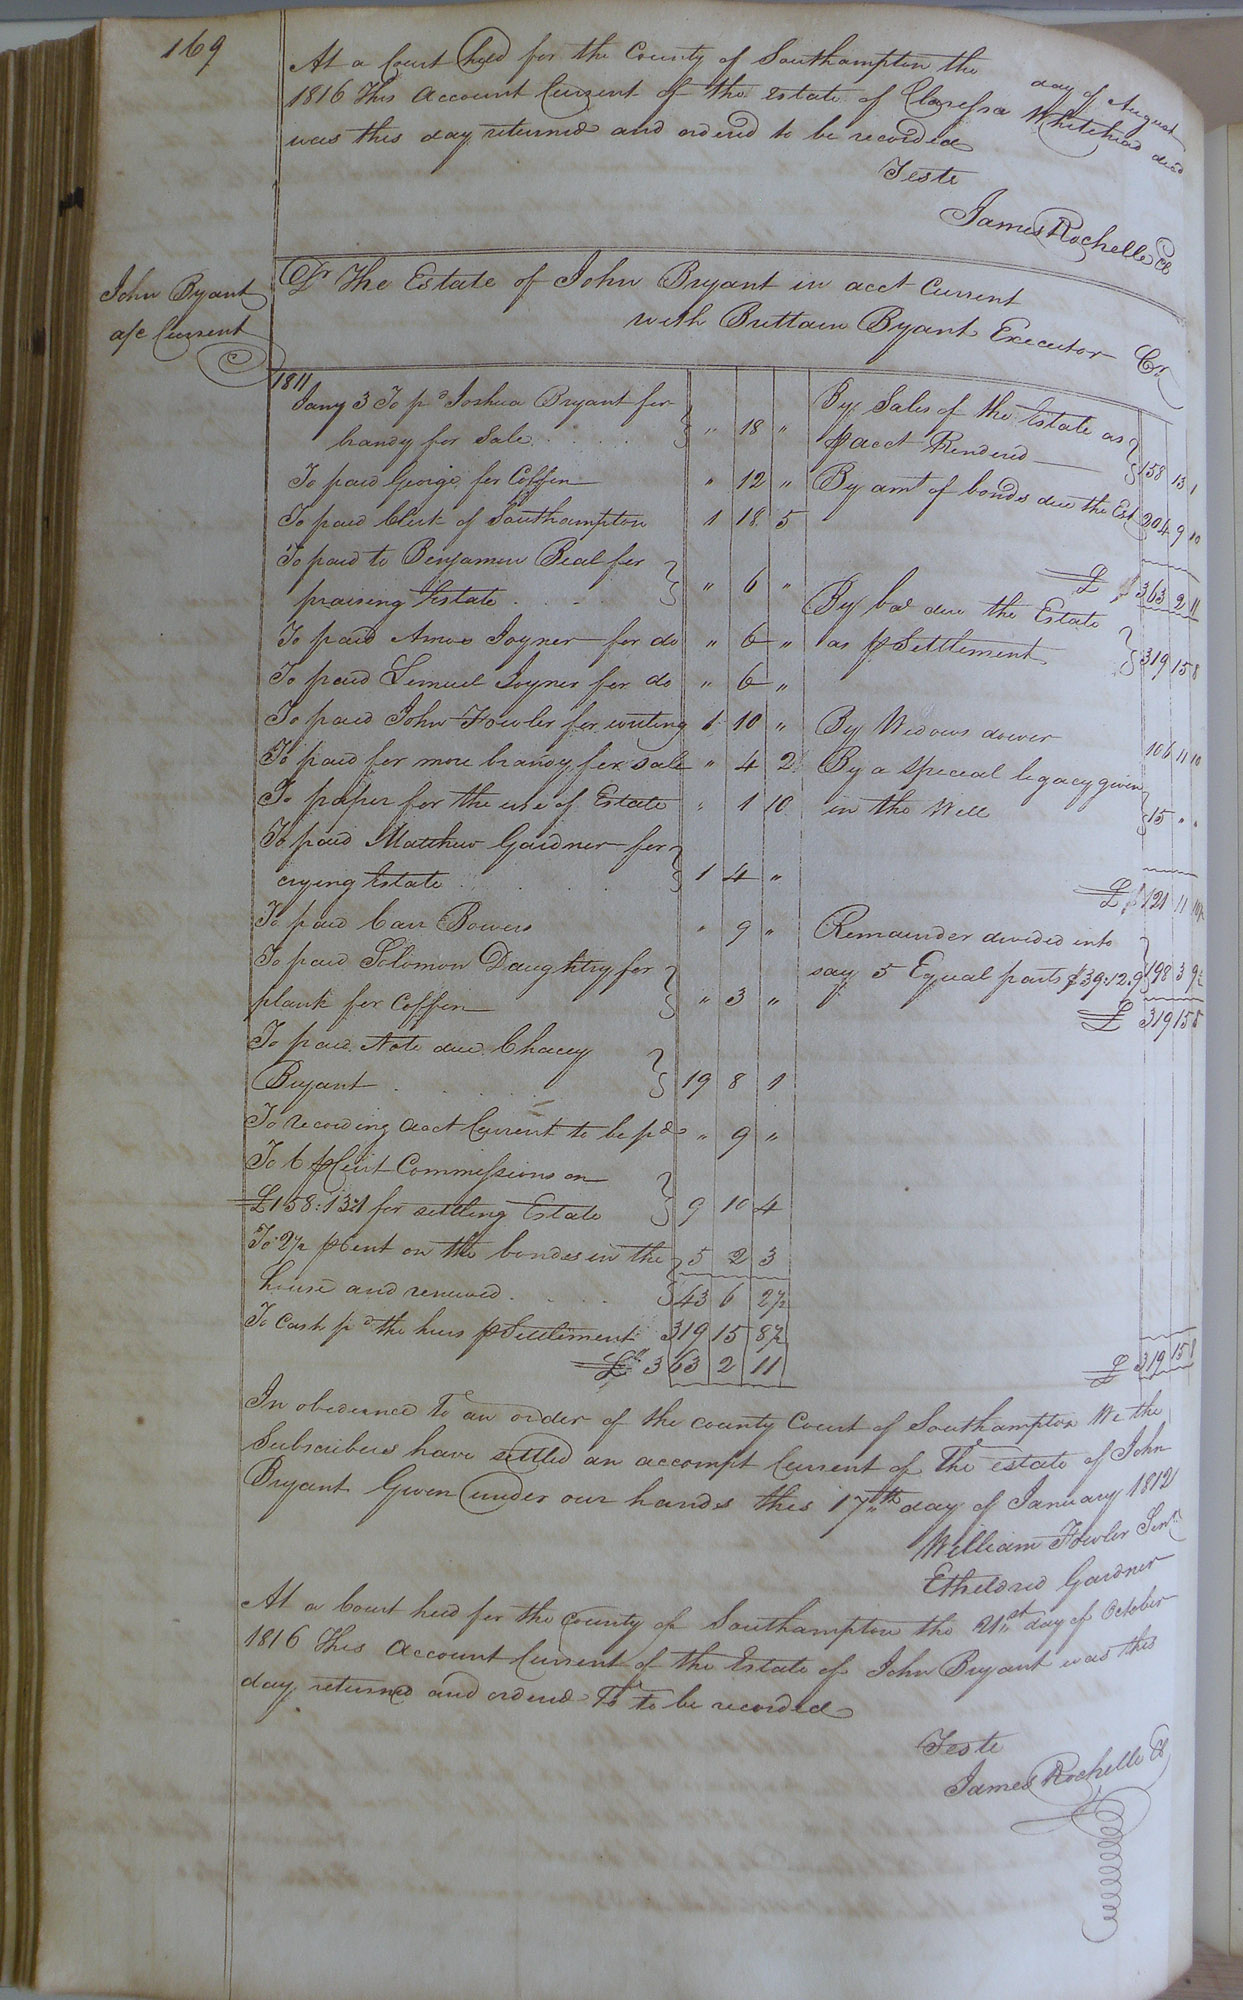 169
At a Court held for the County of Southampton the day of August
1816 This Account Current of the Estate of Whitehead decd
was this day returned and ordered to be recorded
Teste
James Rochelle Cl
John Byant
a/c Current
Dr The Estate of John Bryant in acct Current
with Brittain Byant Executor Cr
1811
Jany 3 To pd Joshua Bryant for
brandy for Sale } " 18 "
To paid George for Coffin " 12 "
To paid Clerk of Southampton 1 18 5
To paid to Benjamin Beal for
praising Estate } " 6 "
To paid Amos Joyner for do " 6 "
To paid Lemuel Joyner for do " 6 "
To paid John Fowler for writing 1 10 "
To paid for more brandy for sale " 4 2
To paper for the use of Estate " 1 10
To paid Matthew Gardner for
crying Estate } 1 4 "
To paid Carr Bowers " 9 "
To paid Solomon Daughtry for
plank for Coffin } " 3 "
To paid Note due Chacey
Bryant } 19 8 1
To recording acct Current to be pd " 9 "
To 6 ⅌ Cent Commissions on
£158:13:1 for settling Estate } 9 10 4
To 2½ ⅌ Cent on the bonds in the 5 2 3
house and renewed } 43 6 2½
To Cash pd the heirs ⅌ Settlement 319 15 8½
£ 363 2 11
By Sales of the Estate as
⅌ acct Rendered } 158 13 1
By amt of bonds due the Est 204 9 10
£ 363 2 11
By bal due the Estate
as ⅌ Settlement } 319 15 8
By Widows dower 106 11 10
By a special legacy given
in the Will } 15 " "
£ 121 11 10½
Remainder divided into
say 5 Equal parts £39:12:9 } 198 3 9½
£ 319 15 8
£ 319 15 8
In obedience To an order of the county Court of Southampton We the
Subscribers have settled an accompt Current of The estate of John
Bryant Given under our hands this 17th day of January 1812
William Fowler Senr
Etheldred Gardner
At a Court held for the County of Southampton the 21st day of October
1816 This Account Current of the Estate of John Bryant was this
day returned and ordered To to be recorded
Teste
James Rochelle Cl